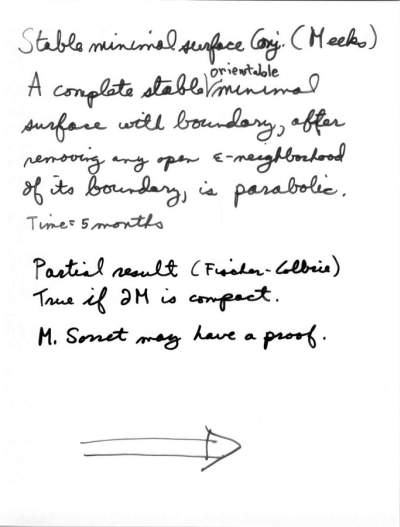 Stable minimal surface Conj. (Meeks)
A complete stable orientable minimal
surface with boundary, after
removing any open ε-neighborhood
of its boundary, is parabolic.
Time = 5 months
Partial result (Fischer-Colbrie)
True if ∂M is compact.
M. Soret may have a proof.